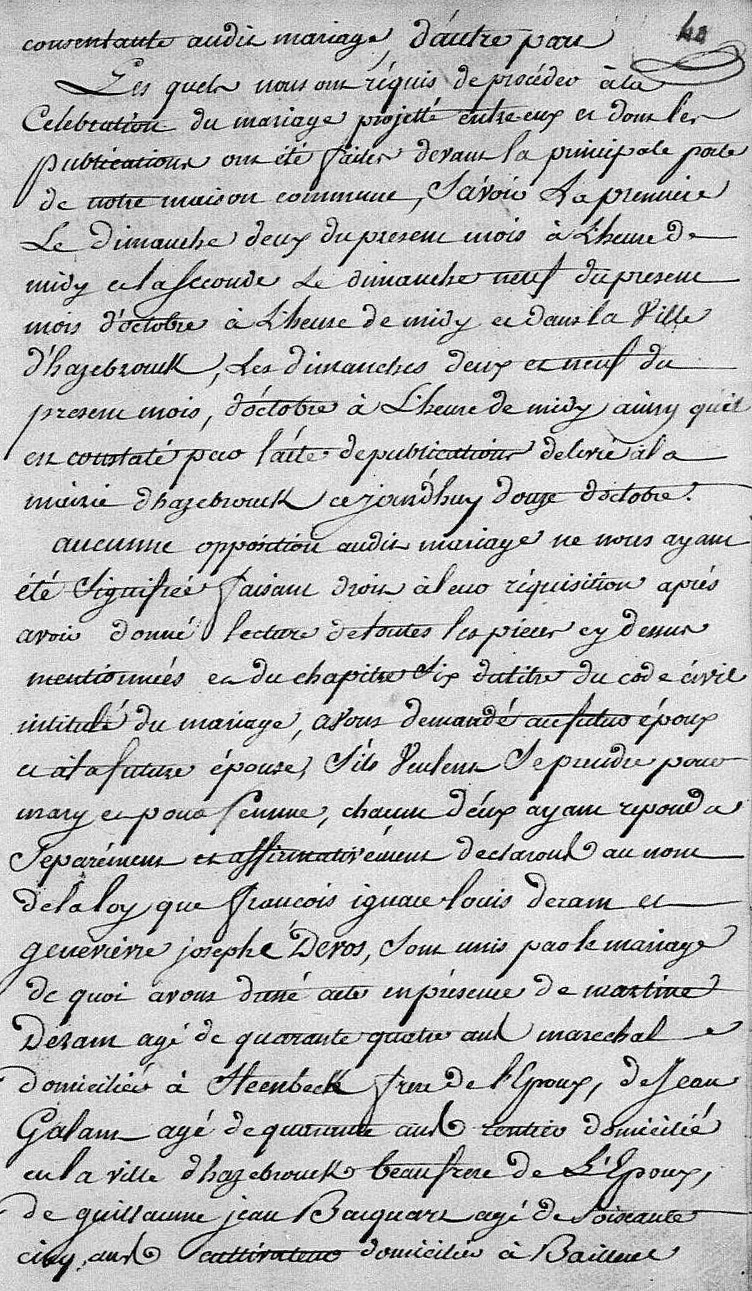 40
consentante audit mariage, d'autre part
Les quels nous ont réquis de procéder à la
Celebration du mariage projetté entre eux et dont les
publications ont été faites devant la principale porte
de notre maison commune, Savoir La premiere
Le dimanche deux du present mois à L'heure de
midy et la Seconde Le dimanche neuf du present
mois d'octobre à L'heure de midy et dans la Ville
d'hazebrouck, Les dimanches deux et neuf du
present mois, d'octobre à L'heure de midy ainsy qu'il
est constaté par l'acte de publications delivré à la
mairie d'hazebrouck ce jourd'huy douze d'octobre.
aucunne opposition audit mariage ne nous ayant
été Signifiée faisant droit à leur réquisition aprés
avoir donné lecture de toutes les pieces cy dessus
mentionnées et du chapitre Six du titre du code civil
intitulé du mariage, avons demandé au futur époux
et à la future épouse, S'ils Veulent Se prendre pour
mary et pour femme, chacun d'eux ayant repondu
Separément et affirmativément declarons au nom
de la loy que françois ignace louis Deram et
genevieve josephe Devos, Sont unis par le mariage
de quoi avons dressé acte en présence de martin
Deram agé de quarante quatre ans marechal
domicilié à Steenbeck frere de l'Epoux, de Jean
Galam agé de quarante ans rentier domicilié
en la ville d'hazebrouck beaufrere de L'Epoux,
de guillaume jean Bacquart agé de Soixante
cinq ans cultivateur domicilié à Bailleul